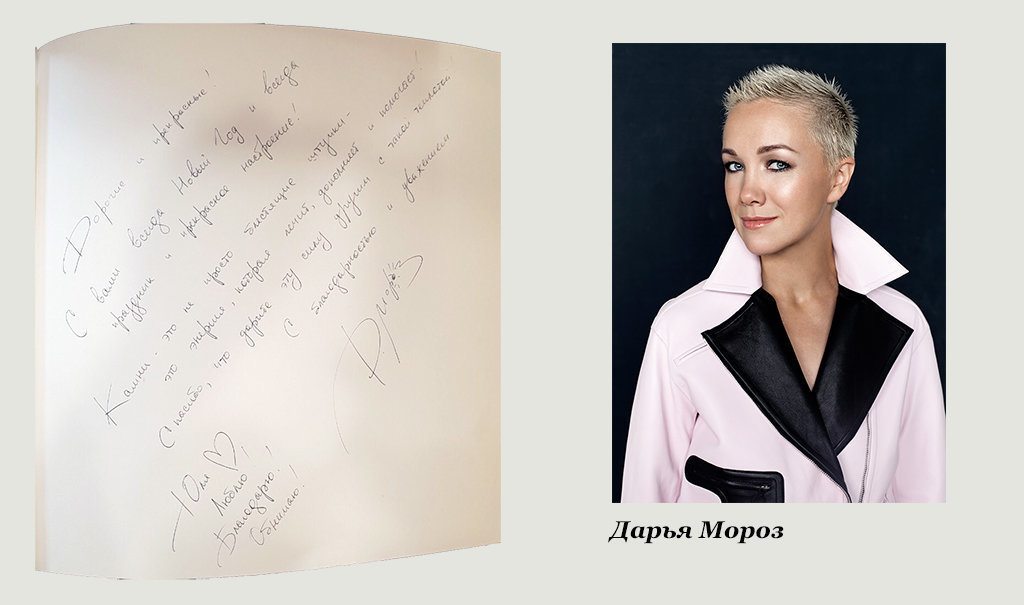 Дорогие и прекрасные!
С вами всегда Новый Год и всегда
праздник и прекрасное настроение!
Камни - это не просто блестящие штучки-
это энергия, которая лечит, дополняет и помогает!
Спасибо, что дарите эту силу другим с такой теплотой!
С благодарностью и уважением
Д.Мороз
Юля ♡!
Люблю!
Благодарю!
Обнимаю!
Дарья Мороз